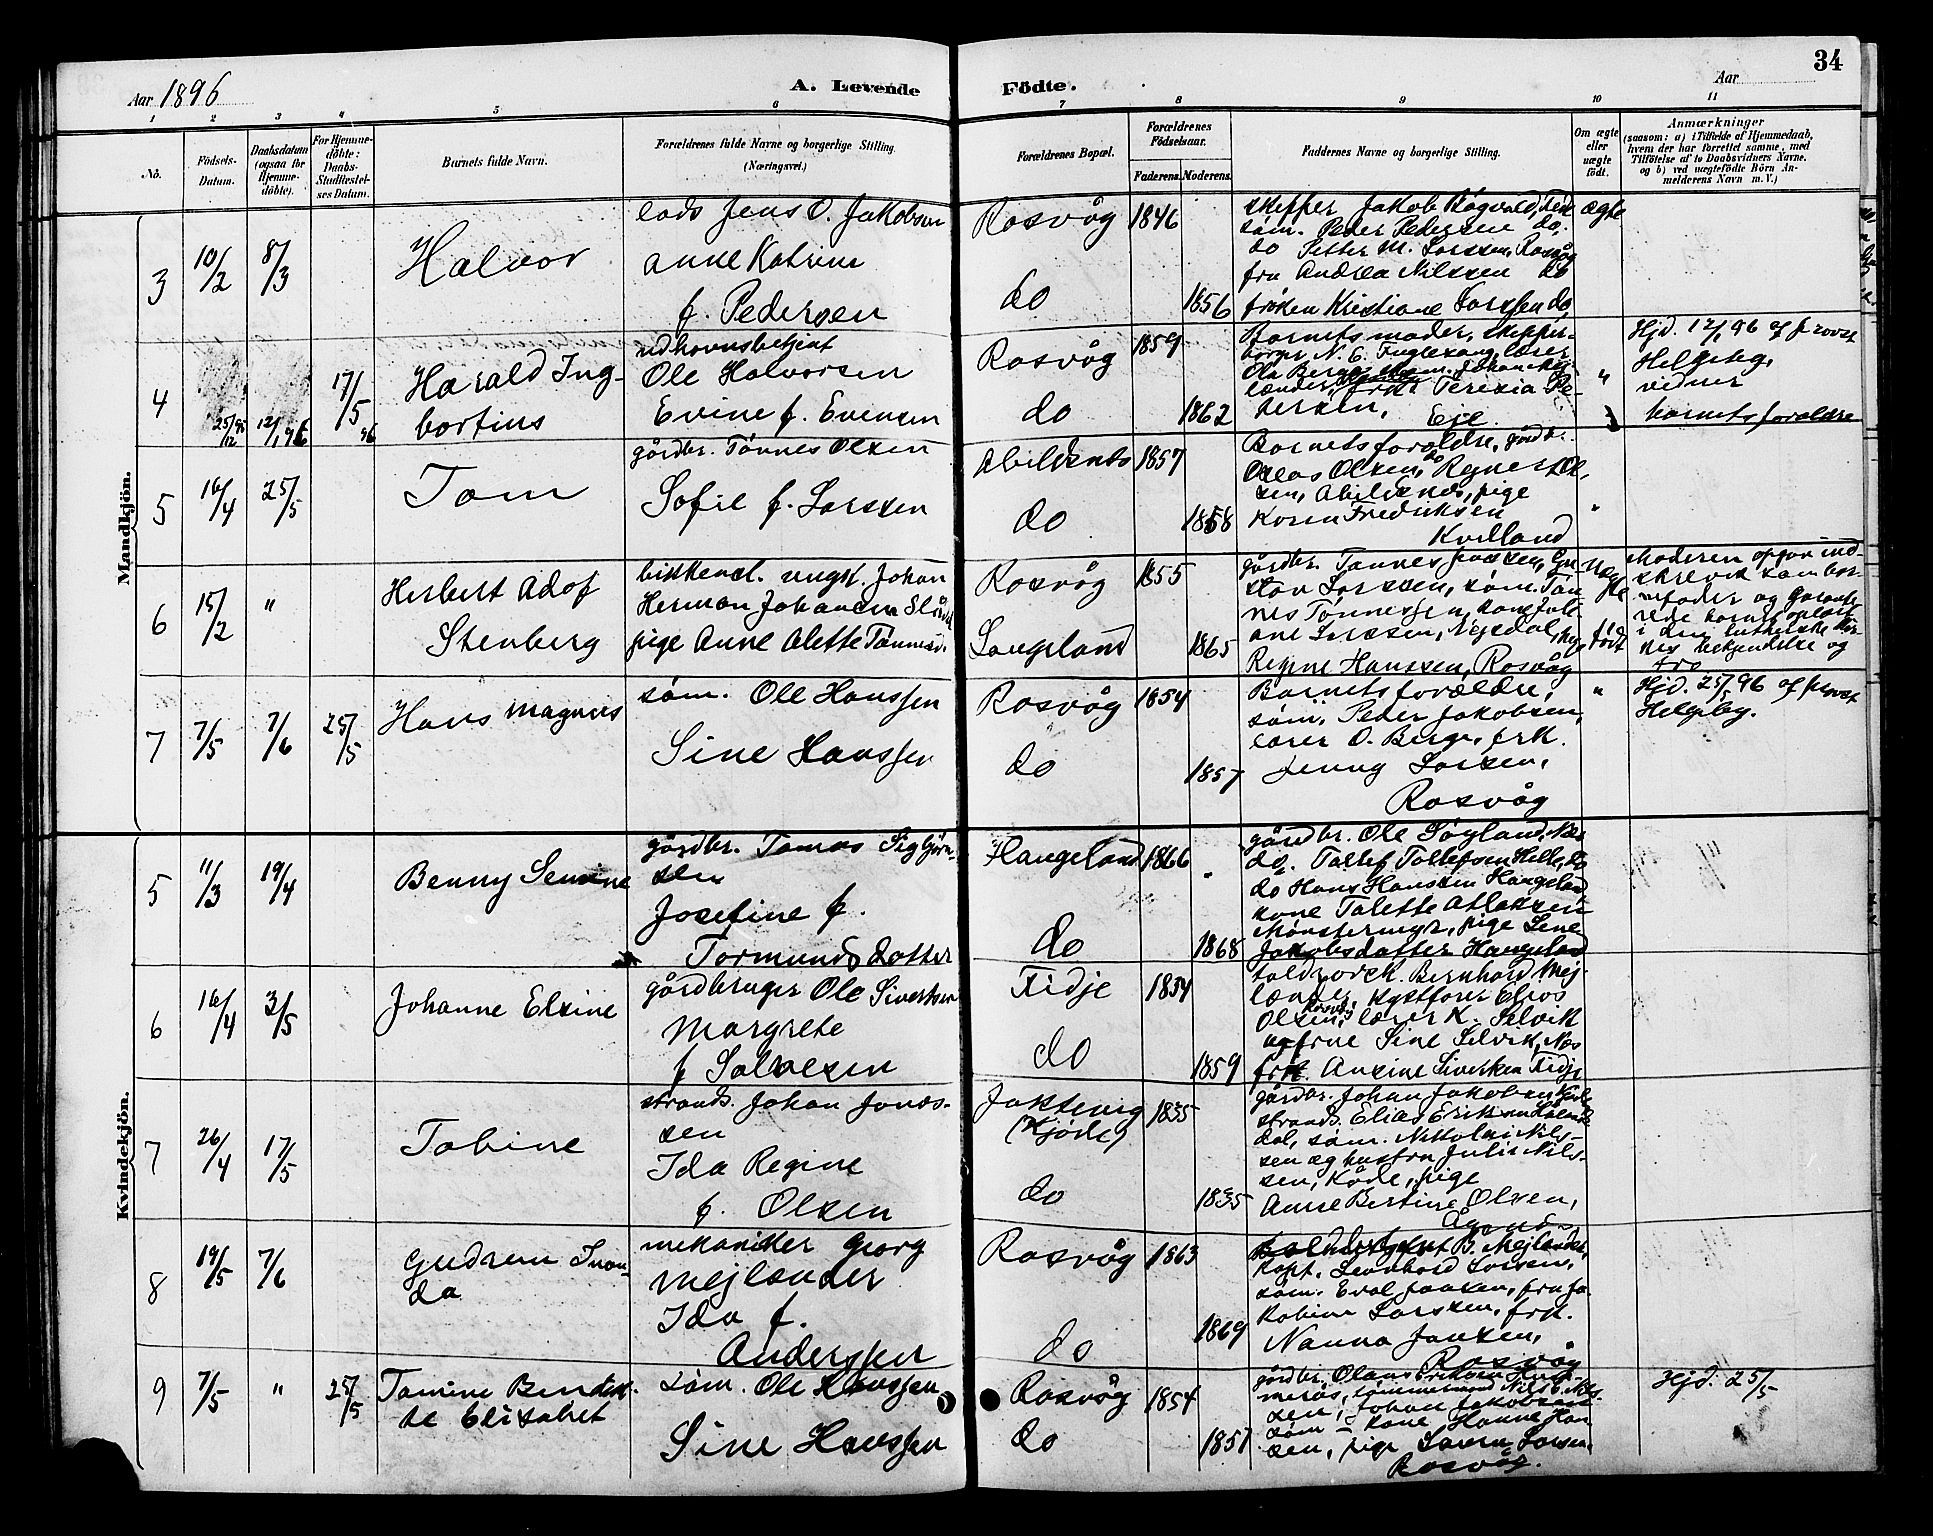 34
Aar 1896
A. Levende
Födte.
Aar
1 2 3 4 5 6 7 8 9 10 11
No.
Födsels-
Datum.
Daabsdatum
(ogsaa for
Hjemme-
döbte).
For Hjemme-
döbte:
Daabs-
Stadfæstel-
ses Datum.
Barnets fulde Navn.
Forældrenes fulde Navne og borgerlige Stilling.
(Næringsvei.)
Forældrenes Bopæl.
Forældrenes
Födselsaar.
Faderens.
Moderens.
Faddernes Navne og borgerlige Stilling.
Om ægte
eller
uægte
födt.
Anmærkninger
(saasom: a) i Tilfælde af Hjemmedaab,
hvem der har forrettet samme, med
Tilföielse af to Daabsvidners Navne.
og b) ved uægtefödte Börn An-
melderens Navn m. V.)
Mandkjön.
3
10/2
8/3
Halvor
lods Jens O. Jakobsen
Anne Katrine
f. Pedersen
Rasvåg
do
1846
1856
skipper Jakob
søm. Peder Pedersen do.
do Petter M. Larssen, Rasvåg
fru Andrea Nilssen do
frøken Kristiane Larssen do
ægte
4
25/12 95
12/1 96
17/5 96
Harald Ing-
bortius
Ole Halvorsen
Evine f. Evensen
Rasvåg
do
1859
1862
Barnets moder, skipper-
N. C. Fuglevang, lærer
Ola Berge, Johan Mej-
lænder, Teresia Pe-
dersen,
"
Hjd. 12/1 96 af provst
Helgeby.
vidner
barnets forældre
5
16/4
25/5
Tom
gårdbr. Tønnes Olsen
Sofie f. Larssen
Abilsnes
do
1857
1858
Barnets forældre, gårdbr.
Olsen, Regner Ol-
sen, Abilsnes, pige
Karen Fredriksen
Kvilland
"
6
15/2
"
Herbert Adof
Stenberg
ungk. Johan
Herman Johansen
pige Anne Alette Tønnesd.
Rasvåg
Langeland
1855
1865
gårdbr. Tønnes Janssen, Gu-
stav Larssen, søm. Tøn-
nes Tønnessen, kone Juli-
ane Larssen, pige
Regine Hanssen, Rasvåg
uæg-
te
født
Moderen opgav ind-
skrevne som bar-
nefader og garante-
rede barnets oplært
i den lutherske kir-
kes bekjendelse og
tro
7
7/5
7/6
25/5
Hans Magnus
søm. Ole Hanssen
Sine Hanssen
Rasvåg
do
1854
1857
Barnets forældre,
søm. Peder Jakobsen,
lærer O. Berge, frk.
Jenny Larsen,
Rasvåg
"
Hjd. 25/5 96 af provst
Helgeby.
Kvindekjön.
5
11/3
19/4
Benny Semine
gårdbr. Tomas Sigbjørn-
sen
Josefine f.
Tormundsdatter
Haugeland
do
1866
1868
gårdbr. Ole Søyland, Næs
do. Tollef Tollefsen Helle, do
do Hans Hanssen Haugeland
kone Talette Atlaksen
Mønstermyr, pige Lene
Jakobsdatter Haugeland
6
16/4
3/5
Johanne Elsine
gårdbruger Ole Sivertsen
Margrete
f Salvesen
Fidje
do
1854
1859
Bernhard Mej-
lænder, Elias
Olsen, Rasvåg, lærer K. Selvik
og frue Sine Selvik, Næs
frk. Ansine Sivertsen Fidje
7
26/4
17/5
Tobine
strands. Johan Jonas-
sen
Ida Regine
f. Olsen
do
1855
1855
gårdbr. Johan Jakobsen
strands. Elias Eriksen
dal, søm. Nikolai Nils-
sen og hustru Julie Nils-
sen, pige
Anne Bertine Olsen,
8
19/5
7/6
Gudrun Ivan-
da
mekaniker Georg
Mejlænder
Ida f.
Anderssen
Rasvåg
do
1863
1869
B. Mejlænder,
Kapt. Leonhard Larsen,
søm. Eval Jansen, fru Ja-
kobine Larssen, frk.
Nanna Jansen,
Rasvåg
9
7/5
"
25/5
Tomine Bendik-
te Elisabet
søm. Ole Hanssen
Sine Hanssen
Rasvåg
do
1854
1857
gårdbr. Olaus Eriksen
tømmermand Nils Nils-
sen, Johan Jakobsen
søm – kone Hanne Han-
sen, pige Larsen,
Rasvåg.
Hjd. 25/5